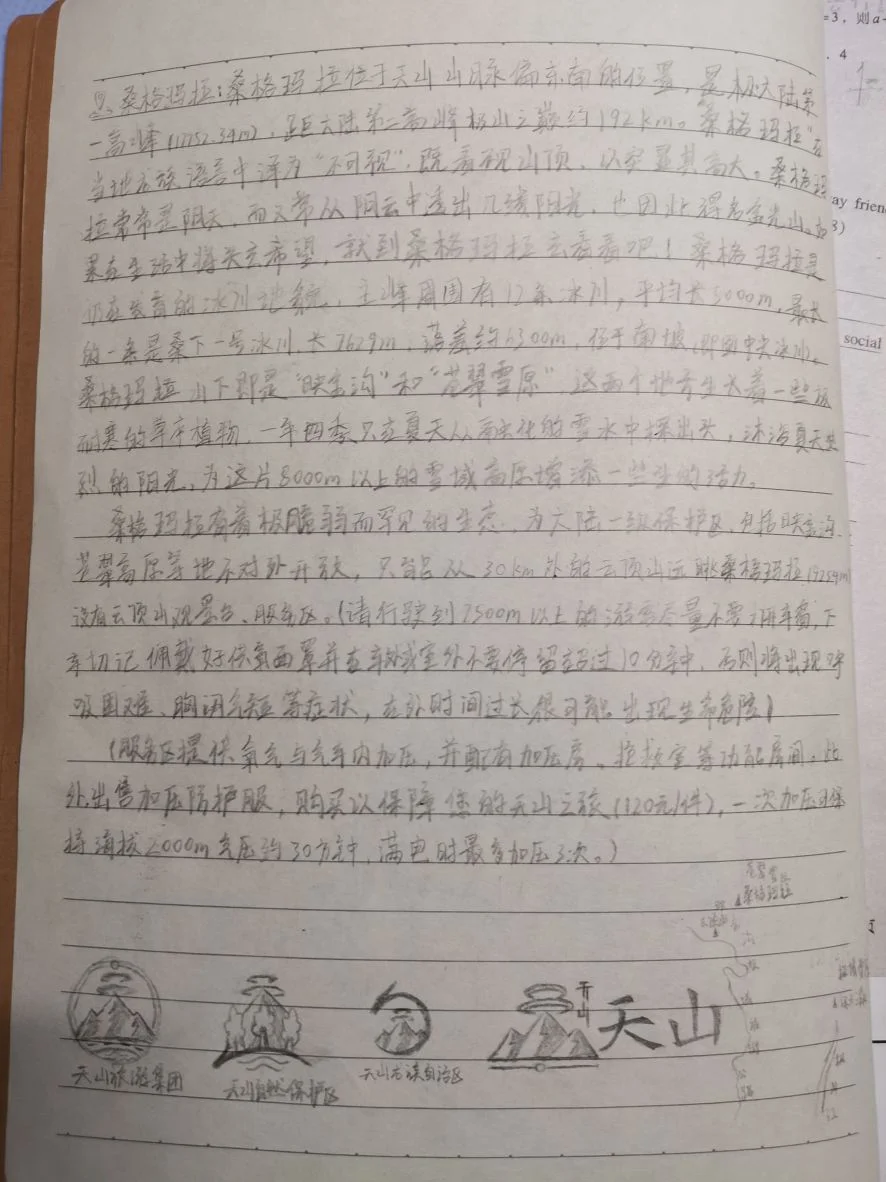 =3，则a
4
2、桑格玛拉：桑格玛拉位于天山山脉偏东南的位置，是极大陆第
一高峰（11252.34m），距大陆第二高峰极山之巅约192km。桑格玛拉"在
当地 族语言中译为"不可视"，既看视山顶，以突显其高大。桑格玛
拉常常是阴天，而又常从阴云中透出几缕阳光，也因此得名金光山。如
果在生活中将失去希望，就到桑格玛拉去看看吧！桑格玛拉是
仍在发育的冰川地貌，主峰周围有12条冰川，平均长5000m，最长
的一条是桑下一号冰川，长7629m，落差约6300m，位于南坡，即 中央冰川。
桑格玛拉山下即是"映金沟"和"苍翠雪原"，这两个地方生长着一些极
耐寒的草本植物，一年四季只在夏天从融化的雪水中探出头，沐浴夏天
烈的阳光，为这片8000m以上的雪域高原增添一些生的活力。
桑格玛拉有着极脆弱而罕见的生态，为大陆一级保护区，包括映金沟、
苍翠高原等地不对外开放，只能从30km外的云顶山远眺桑格玛拉（9259m）
设有云顶山观景台、服务区。（请行驶到7500m以上的游客尽量不要 开车窗，下
车切记佩戴好供氧面罩并在车外或室外不要停留超过10分钟，否则将出现呼
吸困难、胸闷气短等症状，在外时间过长很可能出现生命危险）
（服务区提供氧气与气车内加压，并配有加压房、抢救室等功能房间。此
外，出售加压防护服，购买以保障您的天山之旅（1120元/件），一次加压可保
持海拔2000m气压约30分钟，满电时最多加压3次。）
桑格玛拉
天山
天山
天山旅游集团
天山自然保护区
天山 族自治区
ay frien
3)
social